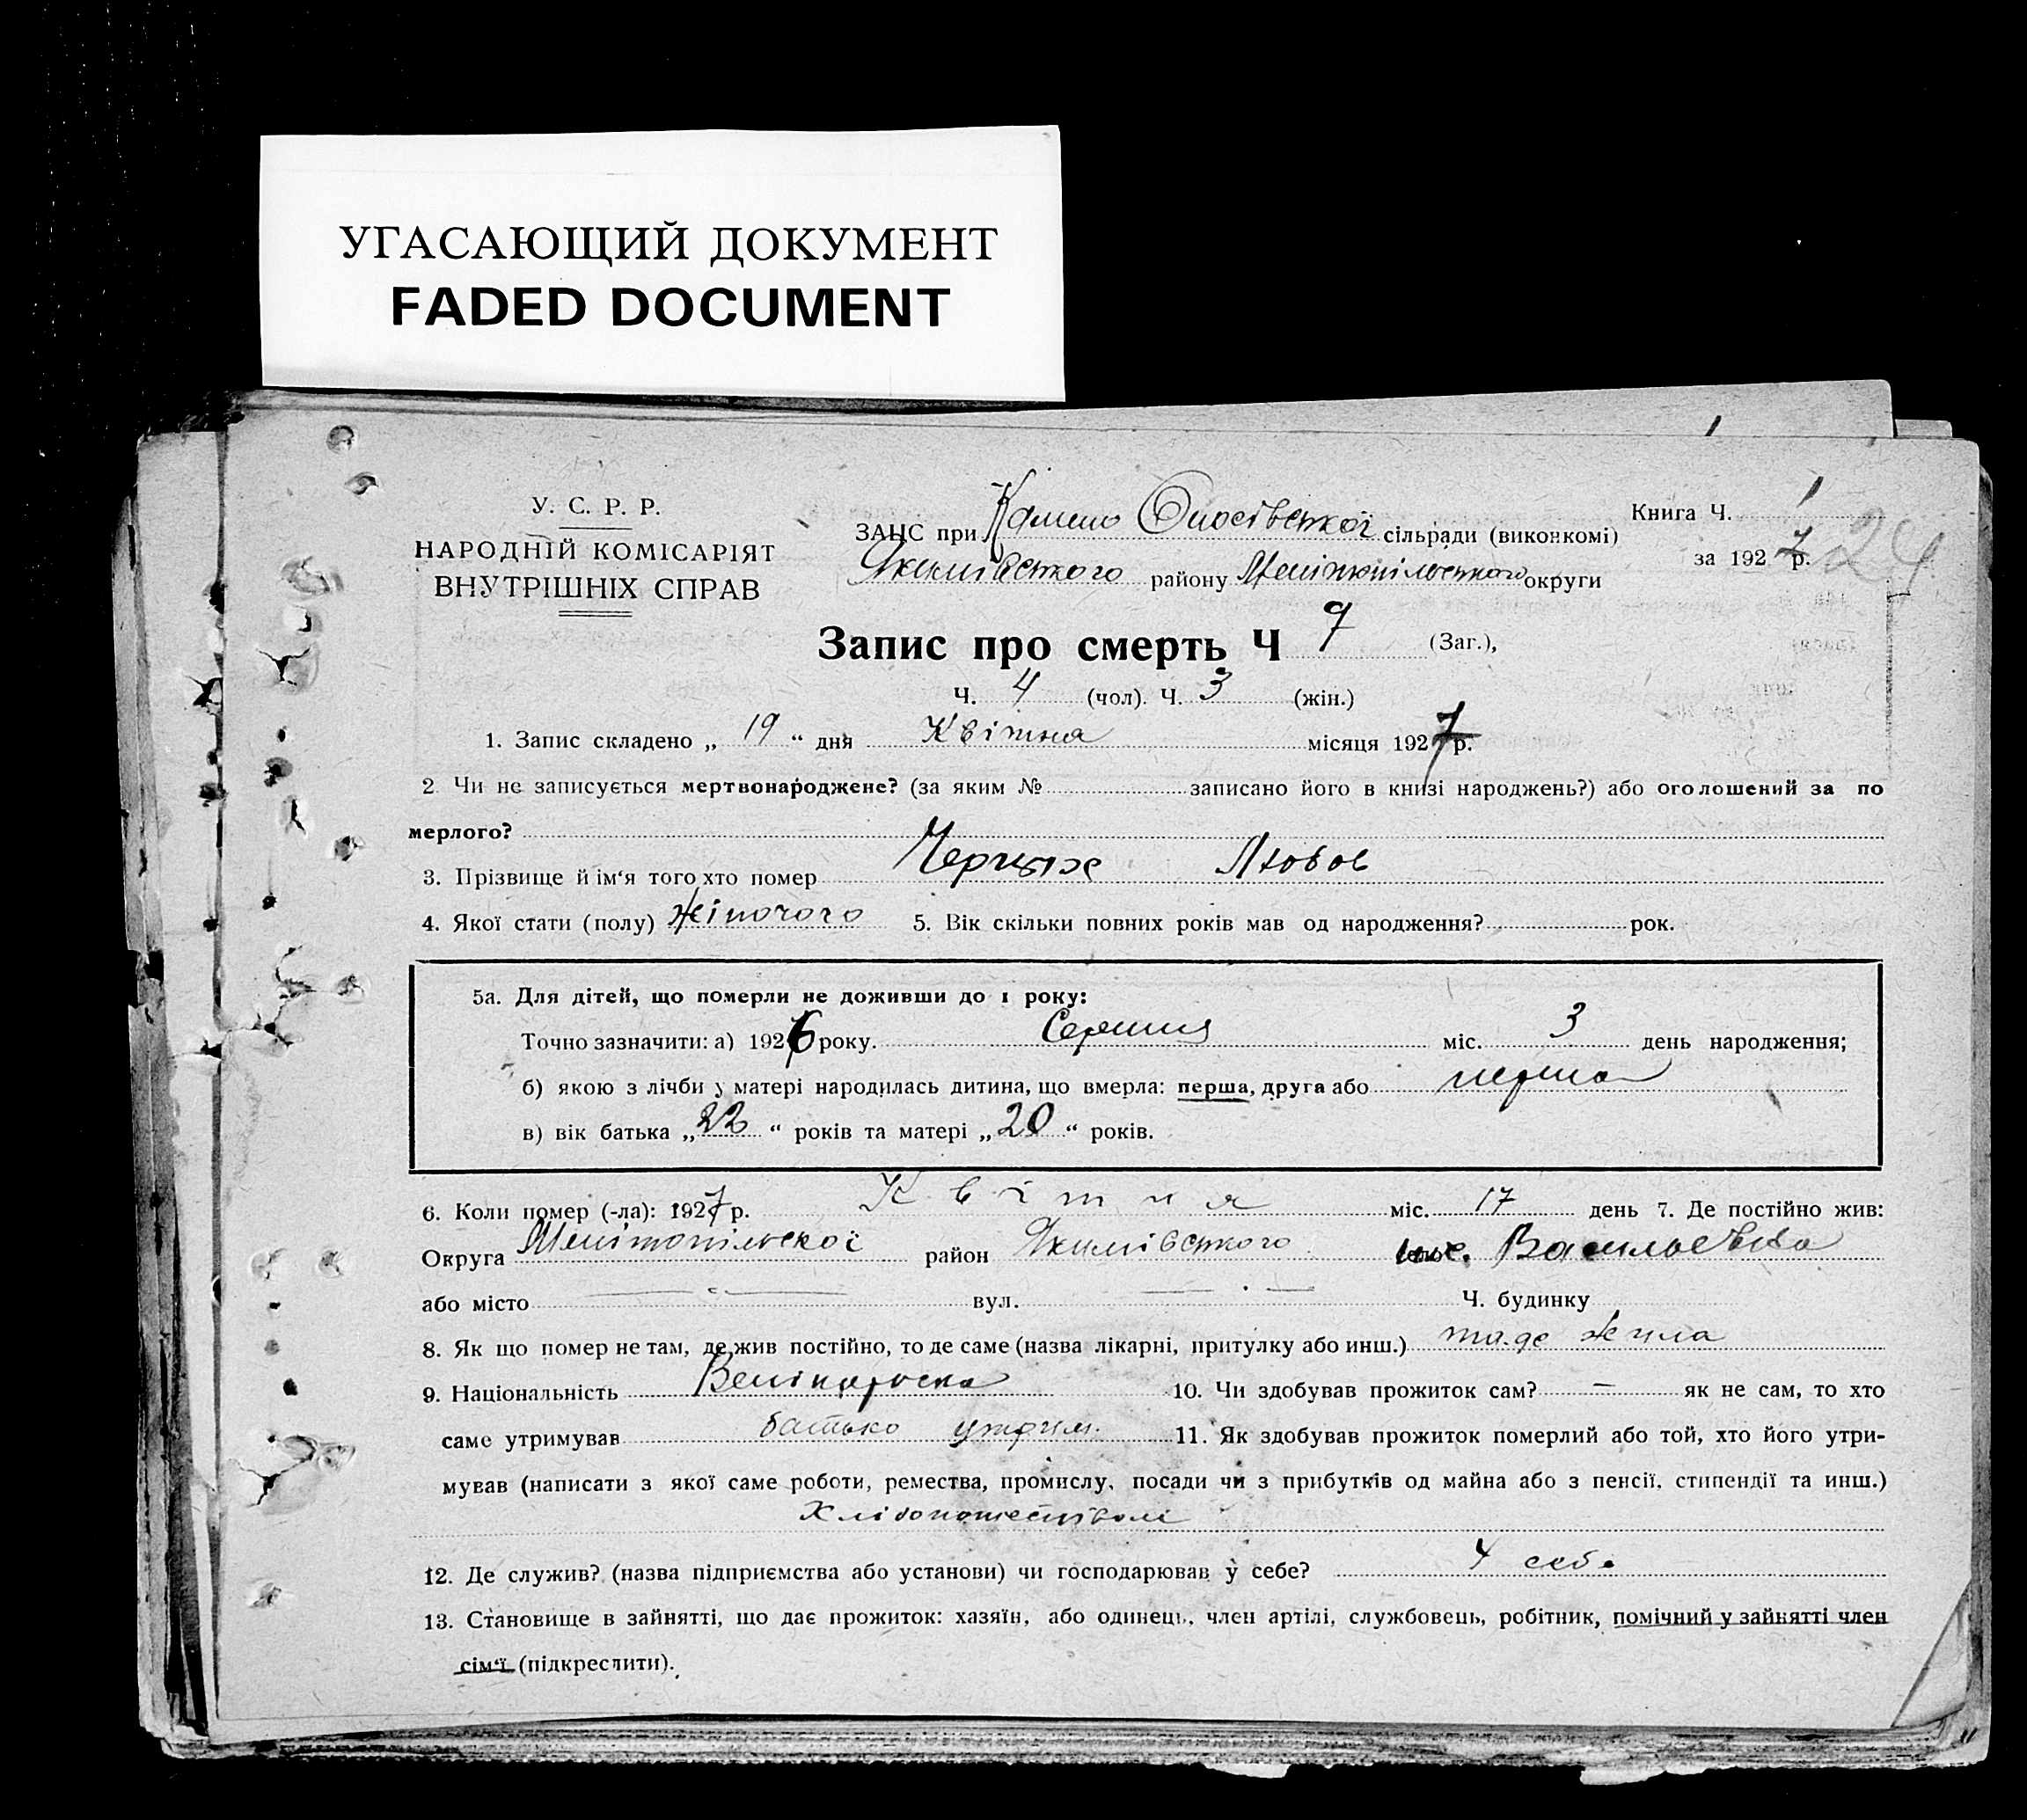 УГАСАЮЩИЙ ДОКУМЕНТ
FADED DOCUMENT
У. С. Р. Р.
НАРОДНІЙ КОМІСАРІЯТ
ВНУТРІШНІХ СПРАВ
ЗАЦС при сільради (виконкомі)
Якимівського району Мелітопільського округи
Книга Ч. 1
за 1927 р.
24
Запис про смерть Ч 7 (Заг.),
Ч. 4 (чол). Ч. 3 (жін.)
1. Запис складено „ 19 “ дня Квітня місяця 1927 р.
2. Чи не записується мертвонароджене? (за яким № записано його в книзі народжень?) або оголошений за по
мерлого?
3. Прізвище й ім‘я того хто помер Любов
4. Якої стати (полу) жіночого 5. Вік скільки повних років мав од народження? рок.
5а. Для дітей, що померли не доживши до 1 року:
Точно зазначити: а) 1926 року. Серпня міс. 3 день народження;
б) якою з лічби у матері народилась дитина, що вмерла: перша, друга або перша
в) вік батька „ 22 “ років та матері „ 20 “ років.
6. Коли помер (-ла): 1927 р. Квітня міс. 17 день 7. Де постійно жив:
Округа Мелітопільскої район Якимівського Васильевка
або місто — вул. — Ч. будинку
8. Як що помер не там, де жив постійно, то де саме (назва лікарні, притулку або инш.) та.де жила
9. Національність Велікоруска 10. Чи здобував прожиток сам? — як не сам, то хто
саме утримував батько утрим. 11. Як здобував прожиток померлий або той, хто його утри-
мував (написати з якої саме роботи, ремества, промислу, посади чи з прибутків од майна або з пенсії, стипендії та инш.)
12. Де служив? (назва підприємства або установи) чи господарював у себе? У себе
13. Становище в зайнятті, що дає прожиток: хазяїн, або одинець, член артілі, службовець, робітник, помічний у зайнятті член
сім‘ї (підкреслити).